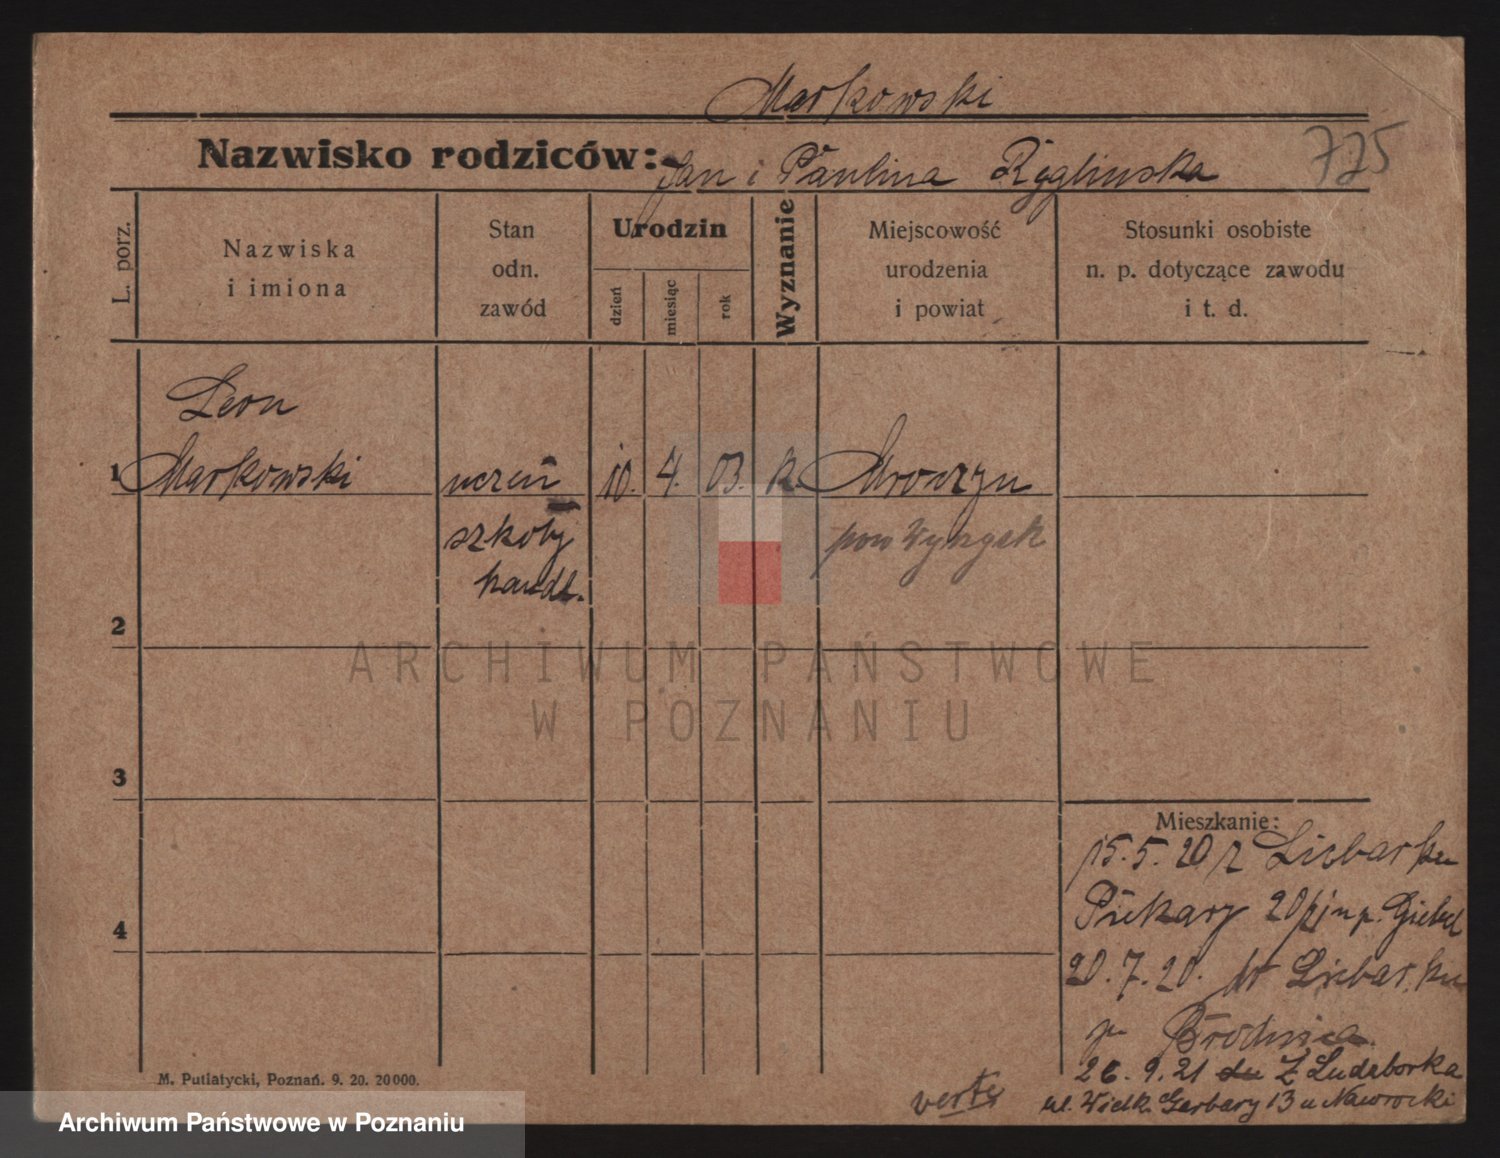 Markowski
Nazwisko rodziców: Jan i Paulina Ryglinska
775
L. porz.
Nazwiska
i imiona
Stan
odn.
zawód
Urodzin
dzień
miesiąc
rok
Wyznanie
Miejscowość
urodzenia
i powiat
Stosunki osobiste
n. p. dotyczące zawodu
i t. d.
Leon
1 Markowski uczeń 10. 4. 03. k. Mroczyn
szkoły pow Wyrzysk
handl.
2
3
4
Mieszkanie:
15.5.20 z Liebarku
Piekary 20/ p. Giebel
20.7.20. do Liebarku
p Brodnica
26.9.21 z Ludzborka
ul. Wielk. Garbary 13 u Nawrocki
verte
M. Putiatycki, Poznań. 9. 20. 20 000.
ARCHIWUM PAŃSTWOWE
W POZNANIU
Archiwum Państwowe w Poznaniu